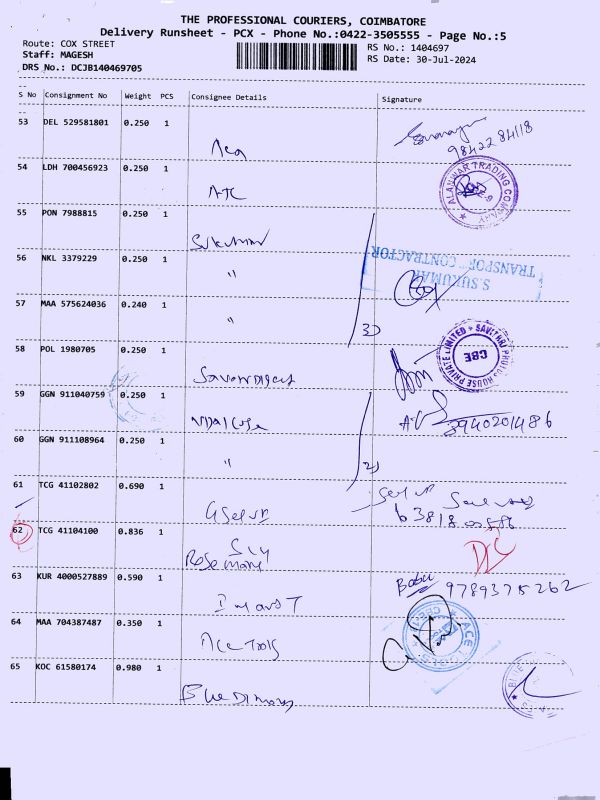 THE PROFESSIONAL COURIERS, COIMBATORE
Delivery Runsheet - PCX - Phone No.:0422-3505555 - Page No.:5
Route: COX STREET
Staff: MAGESH
DRS No.: DCJB140469705
RS No.: 1404697
RS Date: 30-Jul-2024
S No Consignment No Weight PCS Consignee Details Signature
53 DEL 529581801 0.250 1
98422 84118
54 LDH 700456923 0.250 1
ATC
ALANWAR TRADING COMPANY
55 PON 7988815 0.250 1
Sukumar
56 NKL 3379229 0.250 1
"
S.SUKUMAR
TRANSPORT CONTRACTOR
57 MAA 575624036 0.240 1
"
3)
58 POL 1980705 0.250 1
CBE
59 GGN 911040759 0.250 1
60 GGN 911108964 0.250 1
"
2)
61 TCG 41102802 0.690 1
62 TCG 41104100 0.836 1
Rosemary
DC
63 KUR 4000527889 0.590 1
Babu 9789375262
64 MAA 704387487 0.350 1
Ace Tools
ACE TOOLS
65 KOC 61580174 0.980 1